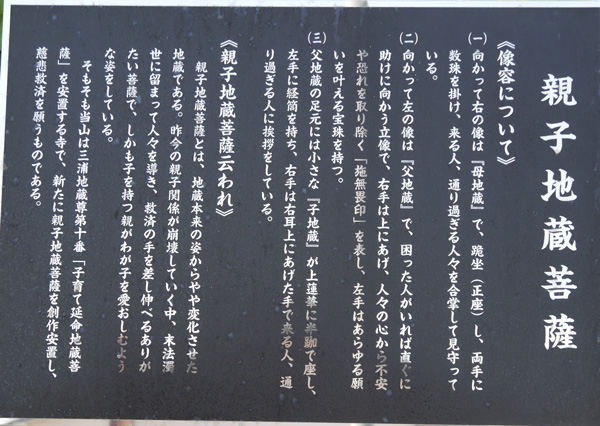 親子地蔵菩薩
《像容について》
㈠ 向かって右の像は『母地蔵』で、跪坐(正座)し、両手に
数珠を掛け、来る人、通り過ぎる人々を合掌して見守って
いる。
㈡ 向かって左の像は『父地蔵』で、困った人がいれば直ぐに
助けに向かう立像で、右手は上にあげ、人々の心から不安
や恐れを取り除く「施無畏印」を表し、左手はあらゆる願
いを叶える宝珠を持つ。
㈢ 父地蔵の足元には小さな『子地蔵』が上蓮華に半跏で座し、
左手に経筒を持ち、右手は右耳上にあげた手で来る人、通
り過ぎる人に挨拶をしている。
《親子地蔵菩薩云われ》
親子地蔵菩薩とは、地蔵本来の姿からやや変化させた
地蔵である。昨今の親子関係が崩壊していく中、末法濁
世に留まって人々を導き、救済の手を差し伸べるありが
たい菩薩で、しかも子を持つ親がわが子を愛おしむよう
な姿をしている。
そもそも当山は三浦地蔵尊第十番「子育て延命地蔵菩
薩」を安置する寺で、新たに親子地蔵菩薩を創作安置し、
慈悲救済を願うものである。